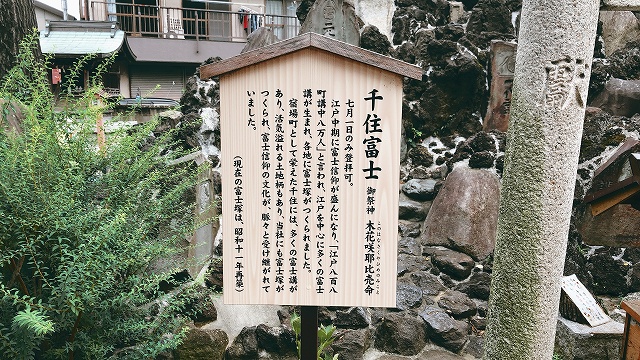 千住富士 御祭神 木花咲耶比売命
このはなさくやひめのみこと
七月一日のみ登拝可。
江戸中期に富士信仰が盛んになり「江戸八百八
町講中八万人」と言われ、江戸を中心に多くの富士
講が生まれ、各地に富士塚がつくられました。
宿場町として栄えた千住には、多くの富士講が
あり、活気溢れる土地柄もあり、当社にも富士塚が
つくられ、富士信仰の文化が、脈々と受け継がれて
いました。
(現在の富士塚は、昭和十一年再築)
献